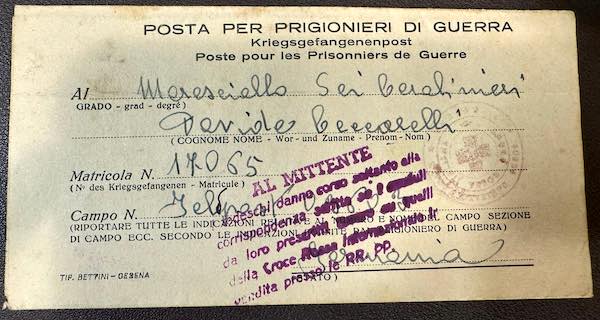 POSTA PER PRIGIONIERI DI GUERRA
Kriegsgefangenenpost
Poste pour les Prisonniers de Guerre
Al Maresciallo dei Carabinieri
GRADO - grad - degré)
Davide Ceccarelli
( COGNOME NOME - Wor - und Zuname - Prenom - Nom )
Matricola N. 17065
( N° des Kriegsgefangenen - Matricule)
Campo N.
(RIPORTARE TUTTE LE INDICAZIONI AL NUMERO E NOME DEL CAMPO SEZIONE
DI CAMPO ECC. SECONDO LE INDICAZIONI PRIGIONIERI DI GUERRA)
Germania
STATO)
TIP. BETTINI - CESENA
AL MITTENTE
I tedeschi danno corso soltanto alla
corrispondenza scritta
da loro prescritti
della Croce Rossa Internazionale in
vendita presso le RR. PP.